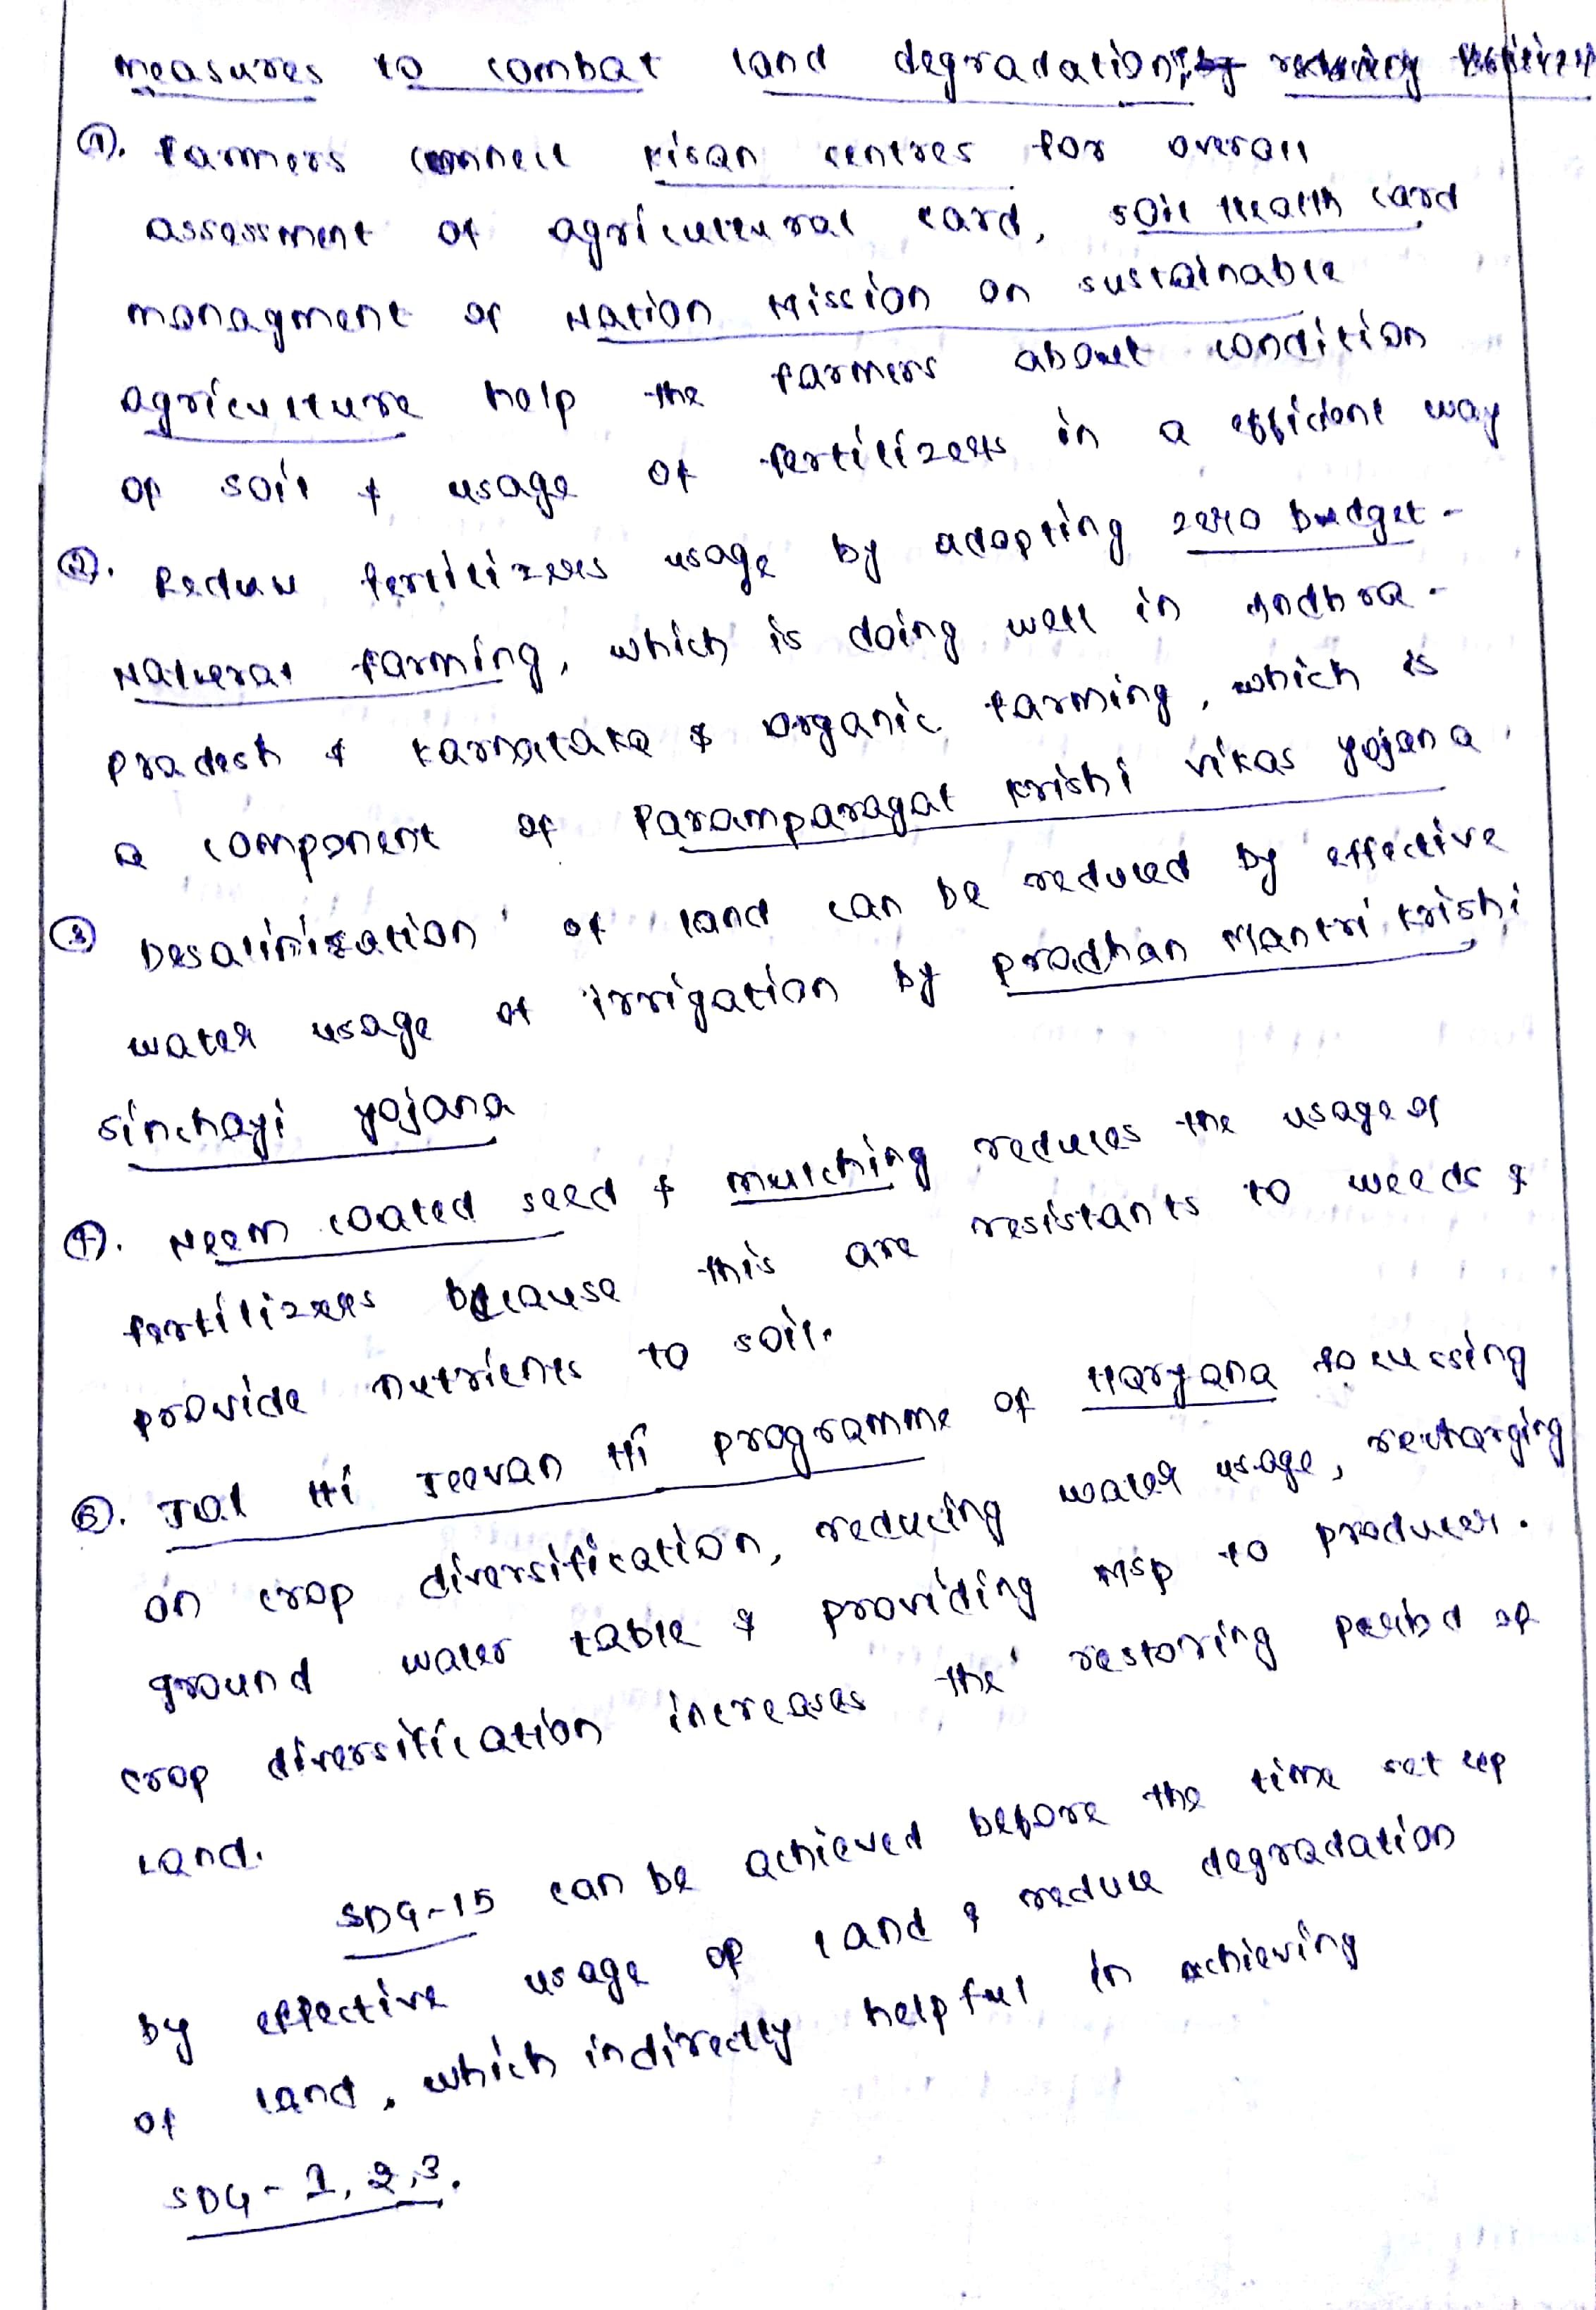 measures to combat land degradation
①. farmers connect kisan centres for overall
assessment of agricultural card, soil Health card
managment of Nation Mission on sustainable
agriculture help the farmers about condition
of soil & usage of fertilizers in a efficient way
②. Reduce fertilizers usage by adopting zero budget -
Natural farming, which is doing well in Andhra -
pradesh & karnataka & organic farming, which is
a component of Paramparagat krishi vikas yojana
③ Desalinization of land can be reduced by effective
water usage of irrigation by pradhan Mantri krishi
sinchayi yojana
④. Neem coated seed & mulching reduces the usage of
fertilizers because this are resistants to weeds &
provide nutrients to soil.
⑤. Jal Hi Jeevan Hi programme of Haryana focussing
on crop diversification, reducing water usage, recharging
ground water table & providing MSP to producer.
crop diversification increases the restoring period of
land.
SDG-15 can be achieved before the time set up
by effective usage of land & reduce degradation
of land, which indirectly helpful in achieving
SDG - 1, 2, 3.